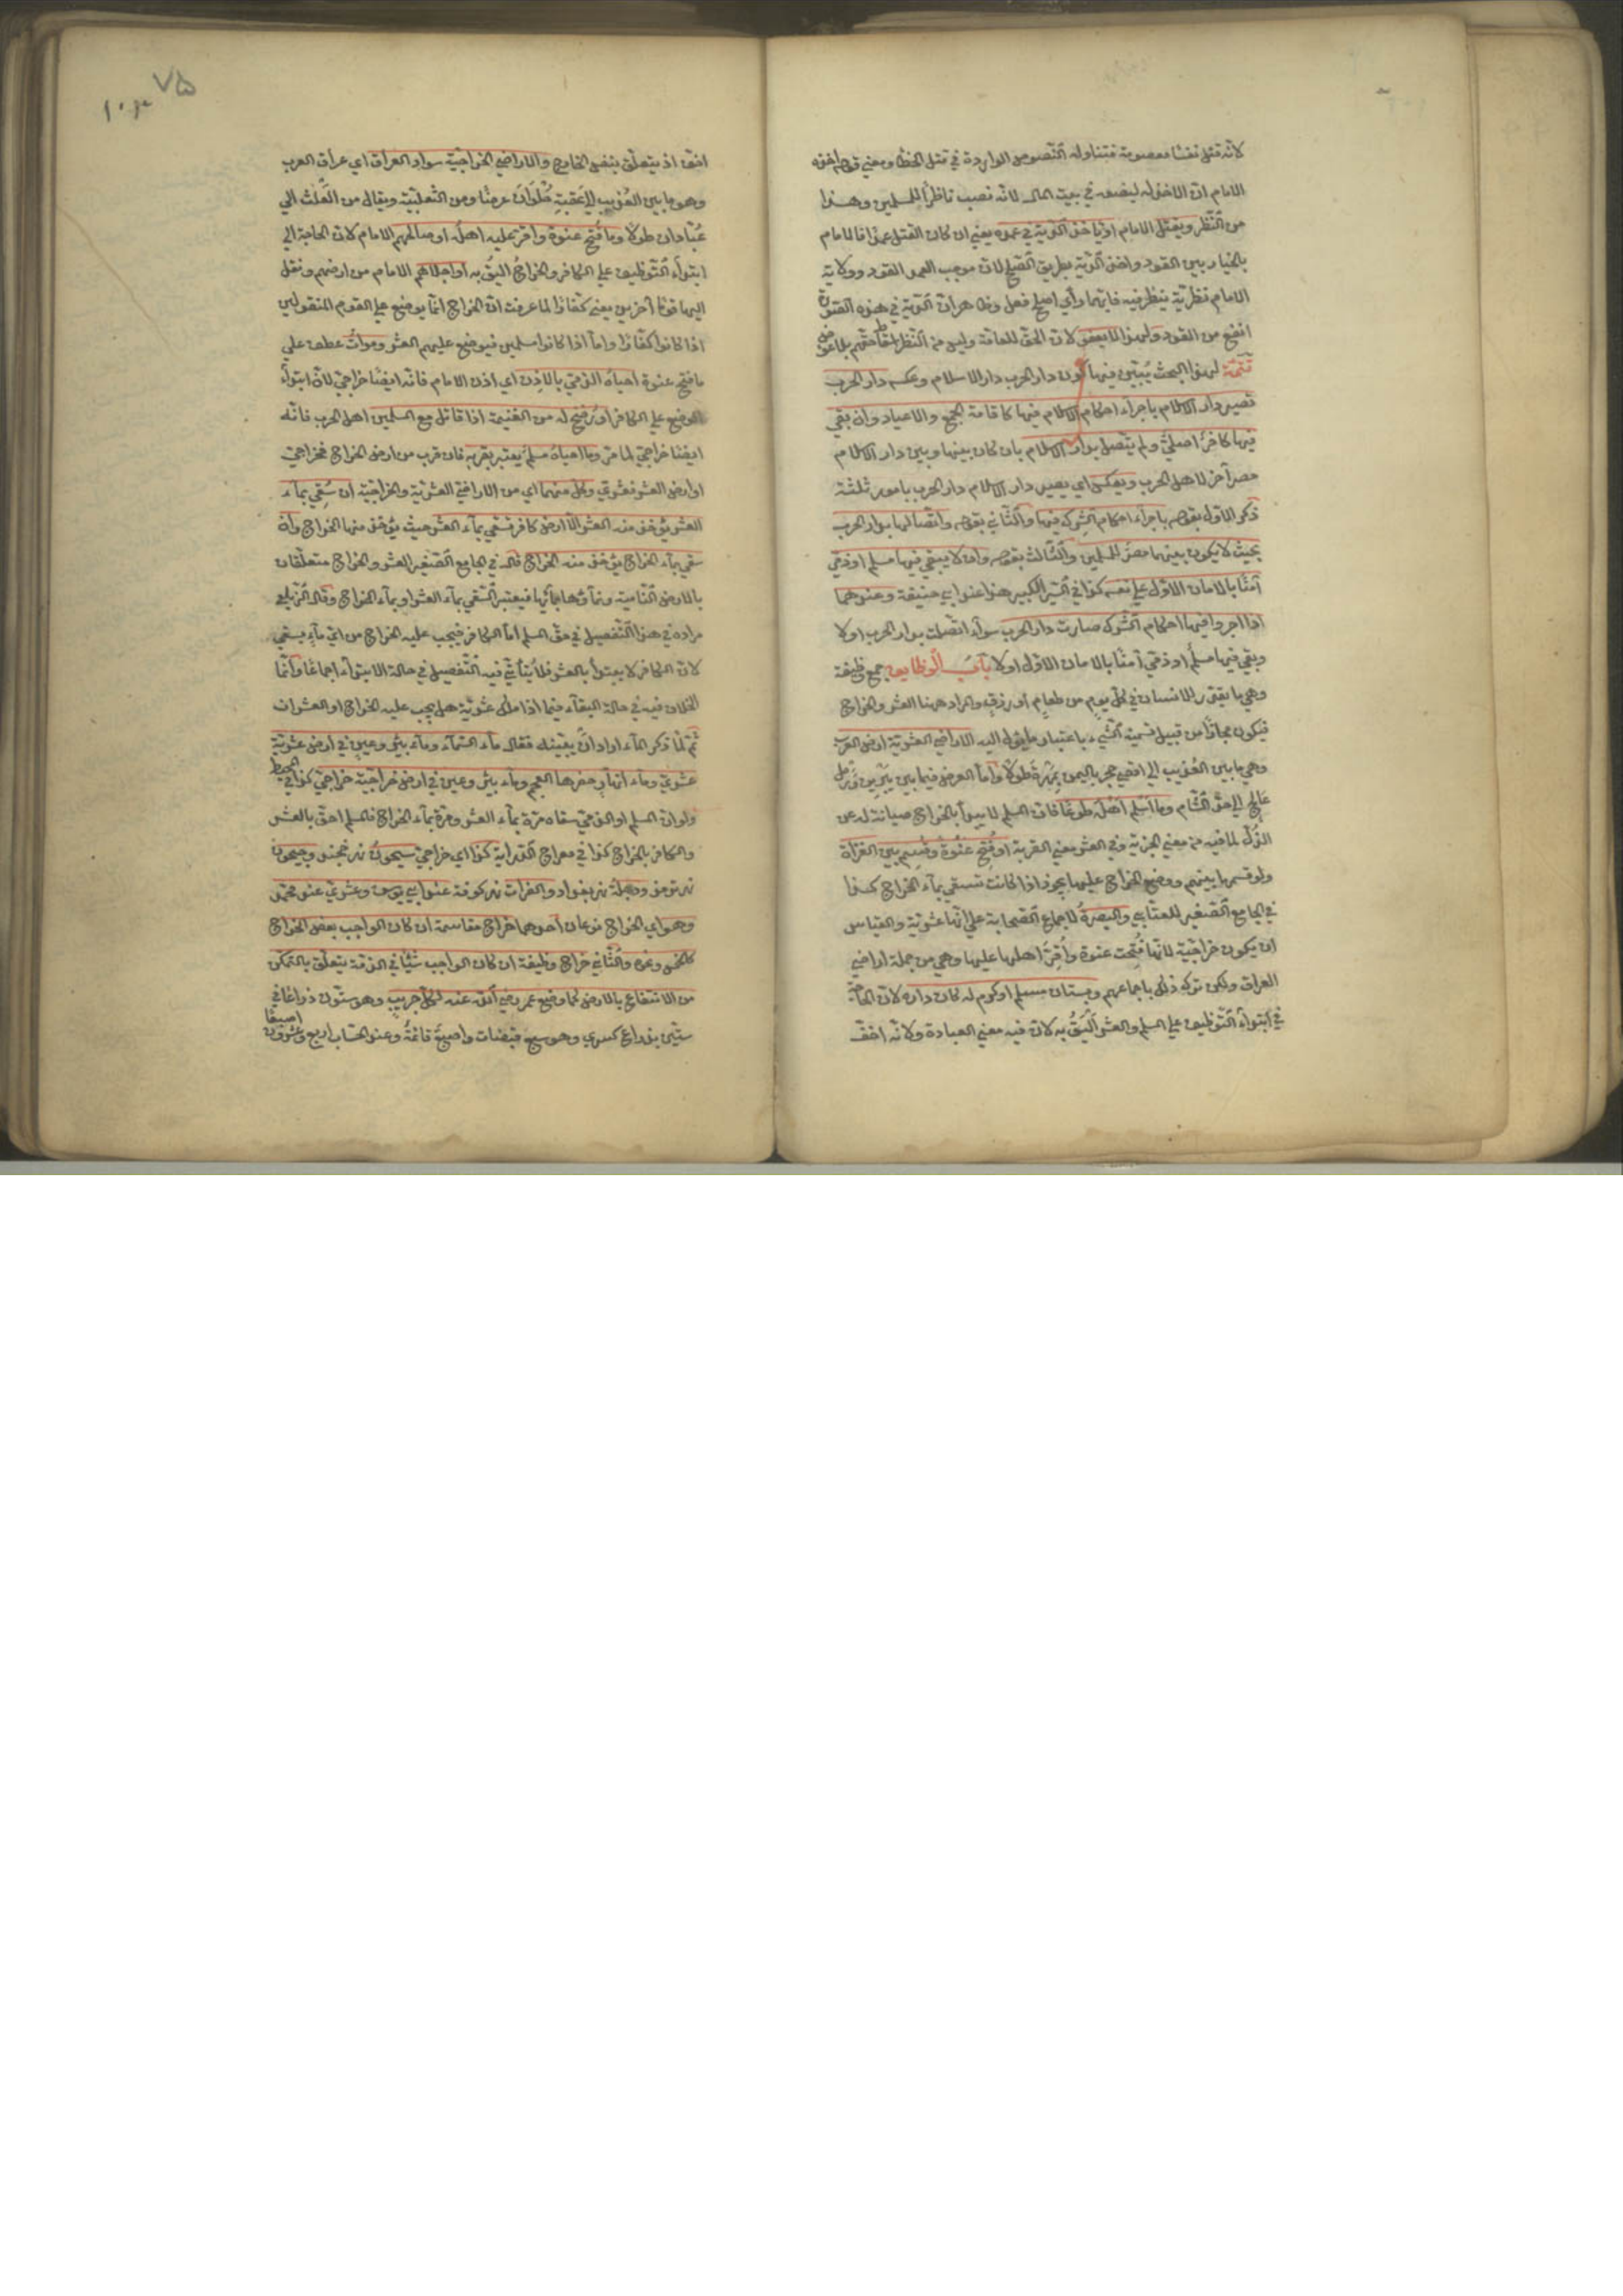 لانه قتل نفسا معصومة فتناوله النصوص الواردة في قتل الخطأ ومعني قولهم اخذه
الامام ان الاخذ له ليضعه في بيت المال لانه نصب ناظرا للمسلمين وهذا
من النظر ويقتل الامام او ياخذ الدية في عمده يعني ان كان القتل عمدا فالامام
بالخيار بين القود واخذ الدية بطريق الصلح لان موجب العمد القود وولاية
الامام نظرية ينظر فيه فايهما رأي اصلح فعل وظاهر ان الدية في هذه الصورة
انفع من القود ولهذا لا يعفو لان الحق للعامة وليس من النظر اسقاط حقهم بلا عوض
تتمة لهذا البحث يبين فيها كون دار الحرب دار الاسلام وعكسه دار الحرب
تصير دار الاسلام باجراء احكام الاسلام فيها كاقامة الجمع والاعياد وان بقي
فيها كافر اصلي ولم يتصل بدار الاسلام بان كان بينها وبين دار الاسلام
مصر آخر لاهل الحرب ويعكس اي يصير دار الاسلام دار الحرب بامور ثلثة
ذكر الاول بقوله باجراء احكام الشرك فيها والثاني بقوله واتصالها بدار الحرب
بحيث لا يكون بينهما مصر للمسلمين والثالث بقوله وان لا يبقي فيها مسلم او ذمي
آمنا بالامان الاول علي نفسه كذا في السير الكبير هذا عند ابي حنيفة وعندهما
اذا اجروا فيها احكام الشرك صارت دار الحرب سواء اتصلت بدار الحرب اولا
وبقي فيها مسلم او ذمي آمنا بالامان الاول اولا باب الوظايف جمع وظيفة
وهي ما يقدر للانسان في كل يوم من طعام او رزق والمراد ههنا العشر والخراج
فيكون مجازا من قبيل تسمية الشيء باعتبار ما يؤل اليه الاراضي العشرية ارض العرب
وهي ما بين العذيب الي اقصي حجر باليمن بمهرة طولا واما العرض فيما بين يبرين ورمل
عالج الي حد الشام وما اسلم اهله طوعا فان المسلم لا يبدأ بالخراج صيانة له عن
الذل لما فيه من معني الجزية وفي العشر معني القربة او فتح عنوة وقسم بين الغزاة
ولو قسمها بينهم ووضع الخراج عليها يجوز اذا كانت تسقي بماء الخراج كذا
في الجامع الصغير للعتابي والبصرة لاجماع الصحابة علي انها عشرية والقياس
ان يكون خراجية لانها فتحت عنوة واقر اهلها عليها وهي من جملة اراضي
العراق ولكن ترك ذلك باجماعهم وبستان مسلم او كرم له كان داره لان الحاجة
في ابتداء التوظيف علي المسلم والعشر اليق به لان فيه معني العبادة ولانه اخف
٧٥
اخف اذ يتعلق بنفس الخارج والاراضي الخراجية سواد العراق اي عراق العرب
وهو ما بين العذيب الي عقبة حلوان عرضا ومن الثعلبية ويقال من العلث الي
عبادان طولا وما فتح عنوة واقر عليه اهله او صالحهم الامام لان الحاجة الي
ابتداء التوظيف علي الكافر والخراج اليق به او اجلاهم الامام من ارضهم ونقل
اليها قوما آخرين يعني كفارا لما عرفت ان الخراج انما يوضع علي القوم المنقولين
اذا كانوا كفارا واما اذا كانوا مسلمين فيوضع عليهم العشر وموات عطف علي
ما فتح عنوة احياه الذمي بالاذن اي اذن الامام فانه ايضا خراجي لان ابتداء
الوضع علي الكافر او رضخ له من الغنيمة اذا قاتل مع المسلمين اهل الحرب فانه
ايضا خراجي لما مر وما احياه مسلم يعتبر بقربه فان قرب من ارض الخراج فخراجي
او ارض العشر فعشري وكل منهما اي من الاراضي العشرية والخراجية ان سقي بماء
العشر يؤخذ منه العشر الا ارض كافر تسقي بماء العشر حيث يؤخذ منها الخراج وان
سقي بماء الخراج يؤخذ منه الخراج قال في الجامع الصغير العشر والخراج متعلقان
بالارض النامية ونماؤها بمائها فيعتبر السقي بماء العشر او بماء الخراج وقال الزيلعي
مراده في هذا التفصيل في حق المسلم اما الكافر فيجب عليه الخراج من اي ماء يسقي
لان الكافر لا يبتدأ بالعشر فلا يتأتي فيه التفصيل في حالة الابتداء اجماعا وانما
الخلاف فيه في حالة البقاء فيما اذا ملك عشرية هل يجب عليه الخراج او العشران
ثم لما ذكر الماء اراد ان يبينه فقال ماء السماء وماء بئر وعين في ارض عشرية
عشري وماء انهار حفرها العجم وماء بئر وعين في ارض خراجية خراجي كذا في المحيط
ولو ان المسلم او الذمي سقاه مرة بماء العشر ومرة بماء الخراج فالمسلم احق بالعشر
والكافر بالخراج كذا في معراج الدراية كذا اي خراجي سيحون نهر خجند وجيحون
نهر ترمذ ودجلة نهر بغداد والفرات نهر كوفة عند ابي يوسف وعشري عند محمد
وهو اي الخراج نوعان احدهما خراج مقاسمة ان كان الواجب بعض الخارج
كالخمس ونحوه والثاني خراج وظيفة ان كان الواجب شيئا في الذمة يتعلق بالتمكن
من الانتفاع بالارض كما وضع عمر رضي الله عنه لكل جريب وهو ستون ذراعا في
ستين بذراع كسري وهو سبع قبضات واصبع قائمة وعند الحساب اربع وعشرون اصبعا